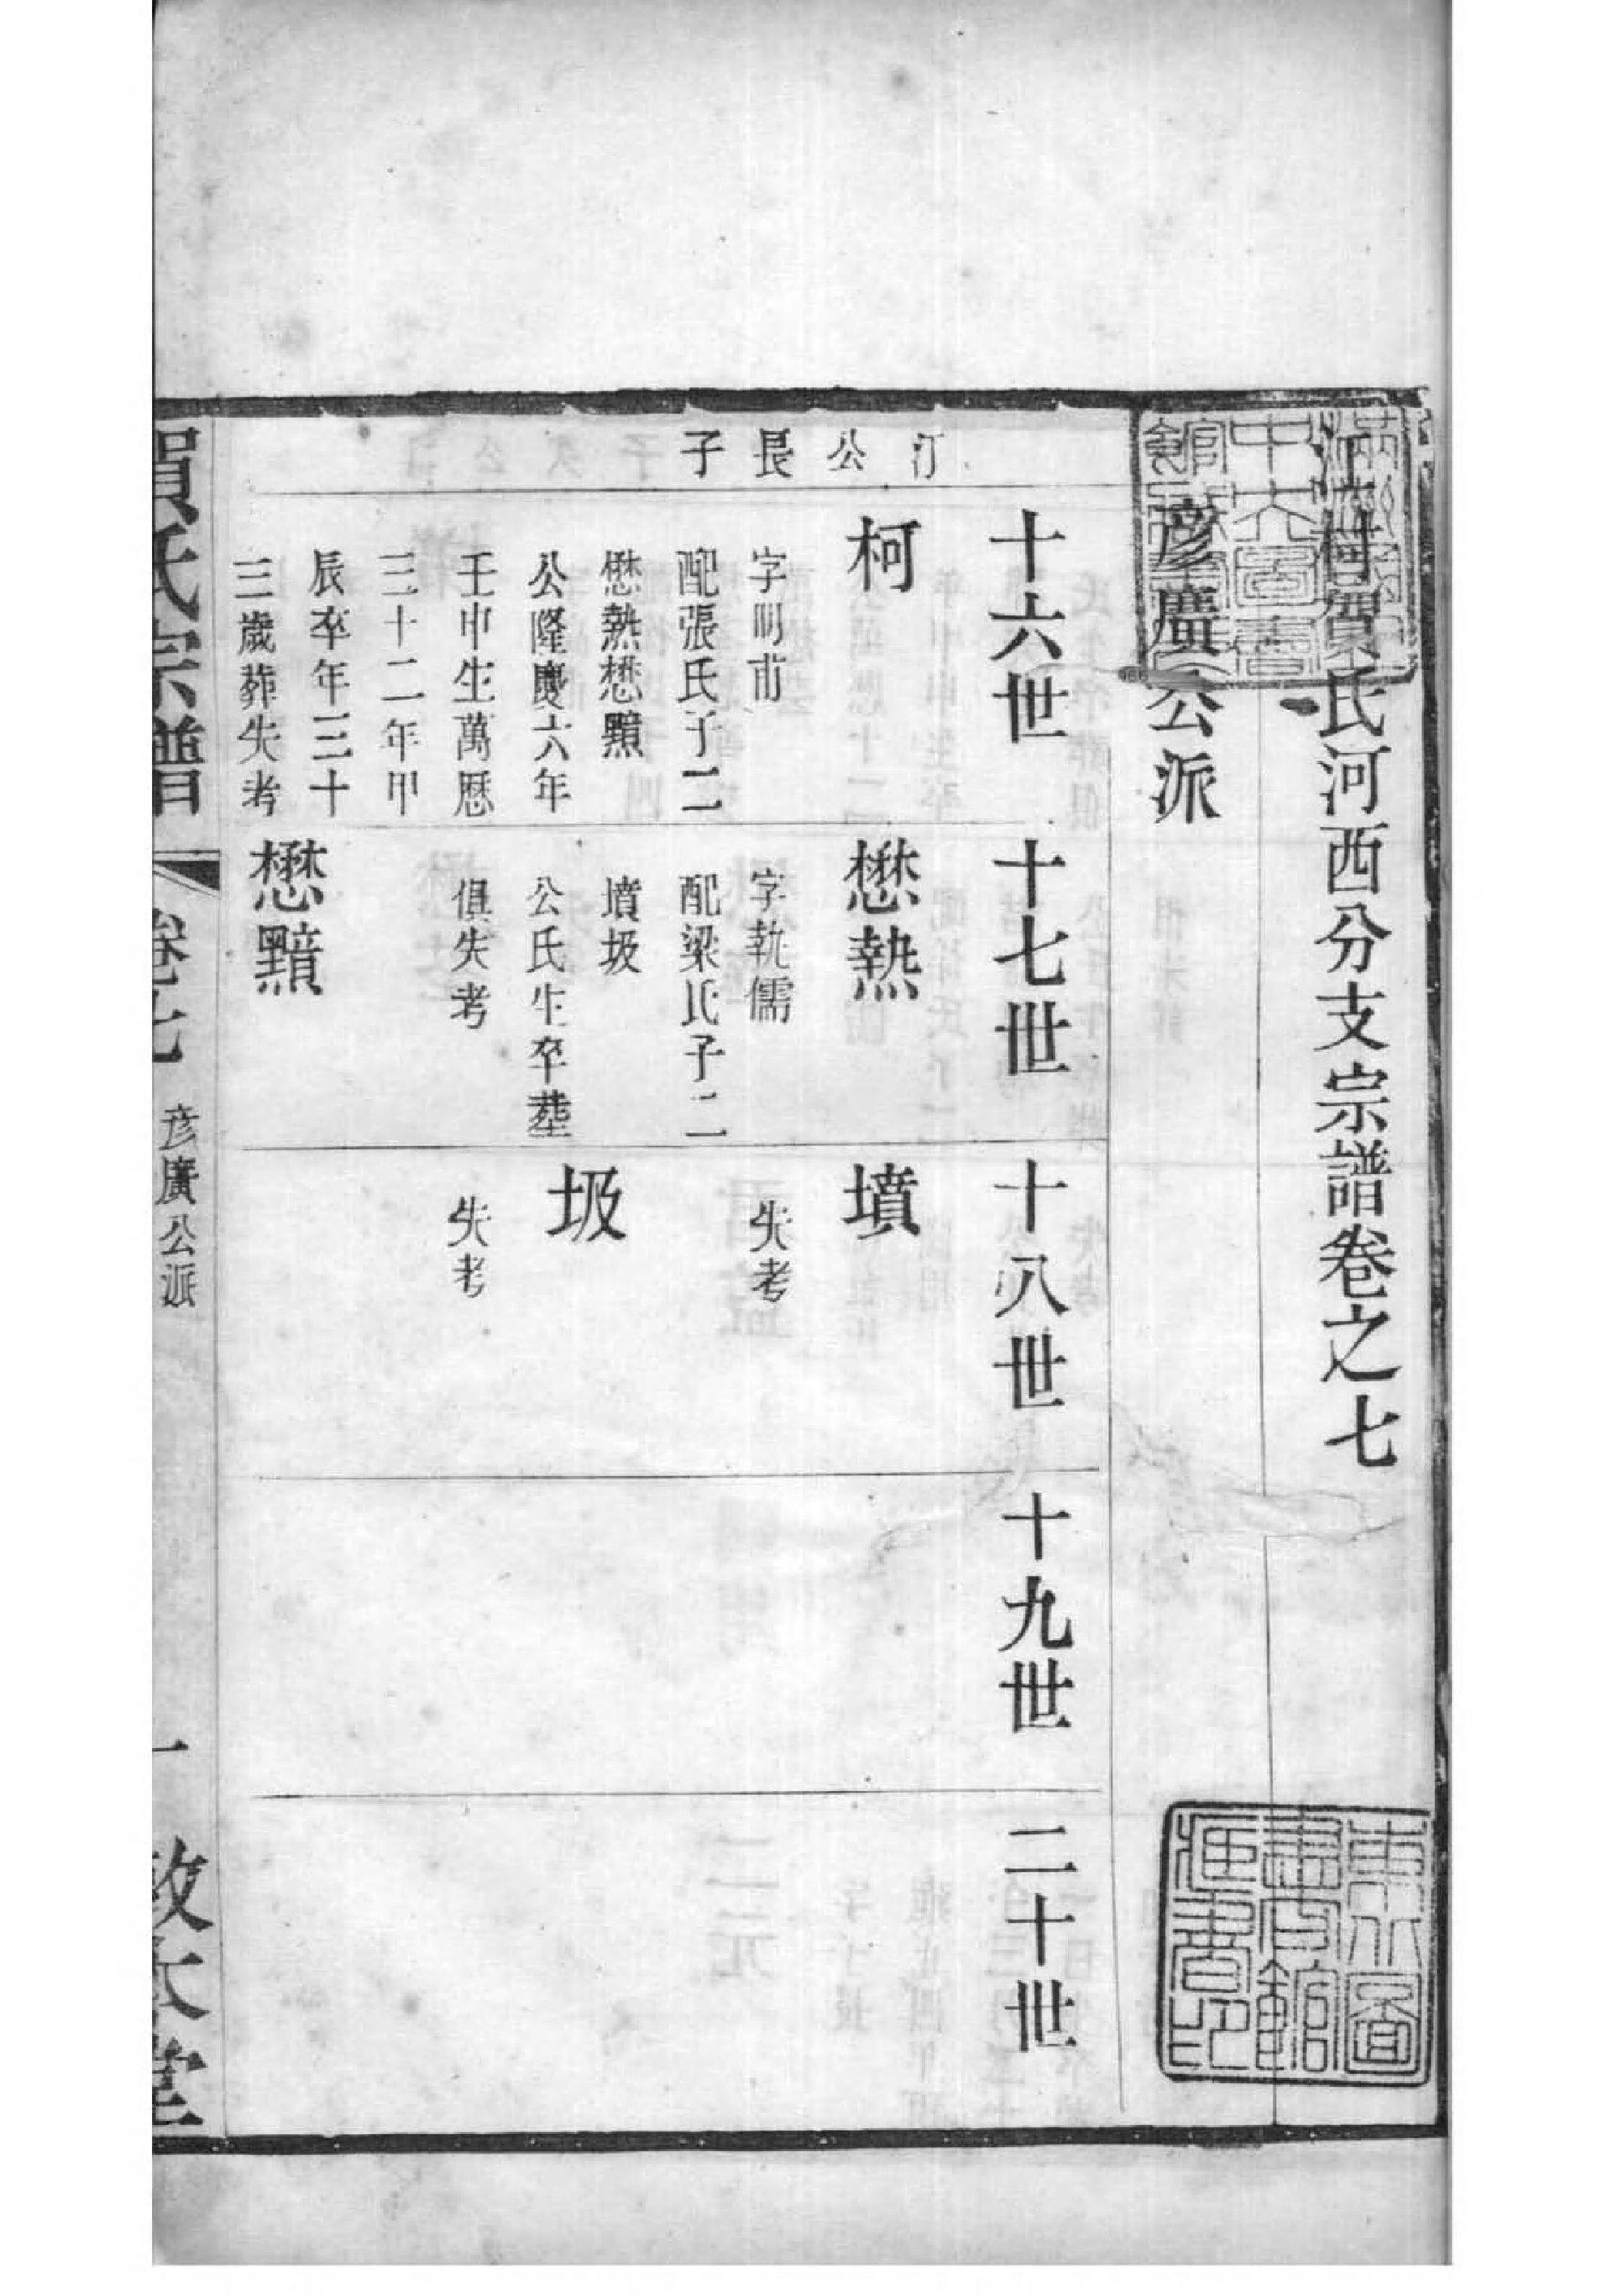 賀氏河西分支宗譜卷之七
彥廣公派
十六世
十七世
十八世
十九世
二十世
汀公長子
柯
字明甫
配張氏子二
懋熱懋黯
公隆慶六年
壬申生萬歷
三十二年甲
辰卒年三十
三歲葬失考
懋熱
字執儒
配梁氏子二
墳圾
公氏生卒塟
俱失考
懋黯
墳
失考
圾
失考
賀氏宗譜
卷七
彥廣公派
一
敦本堂
東北圖
書館